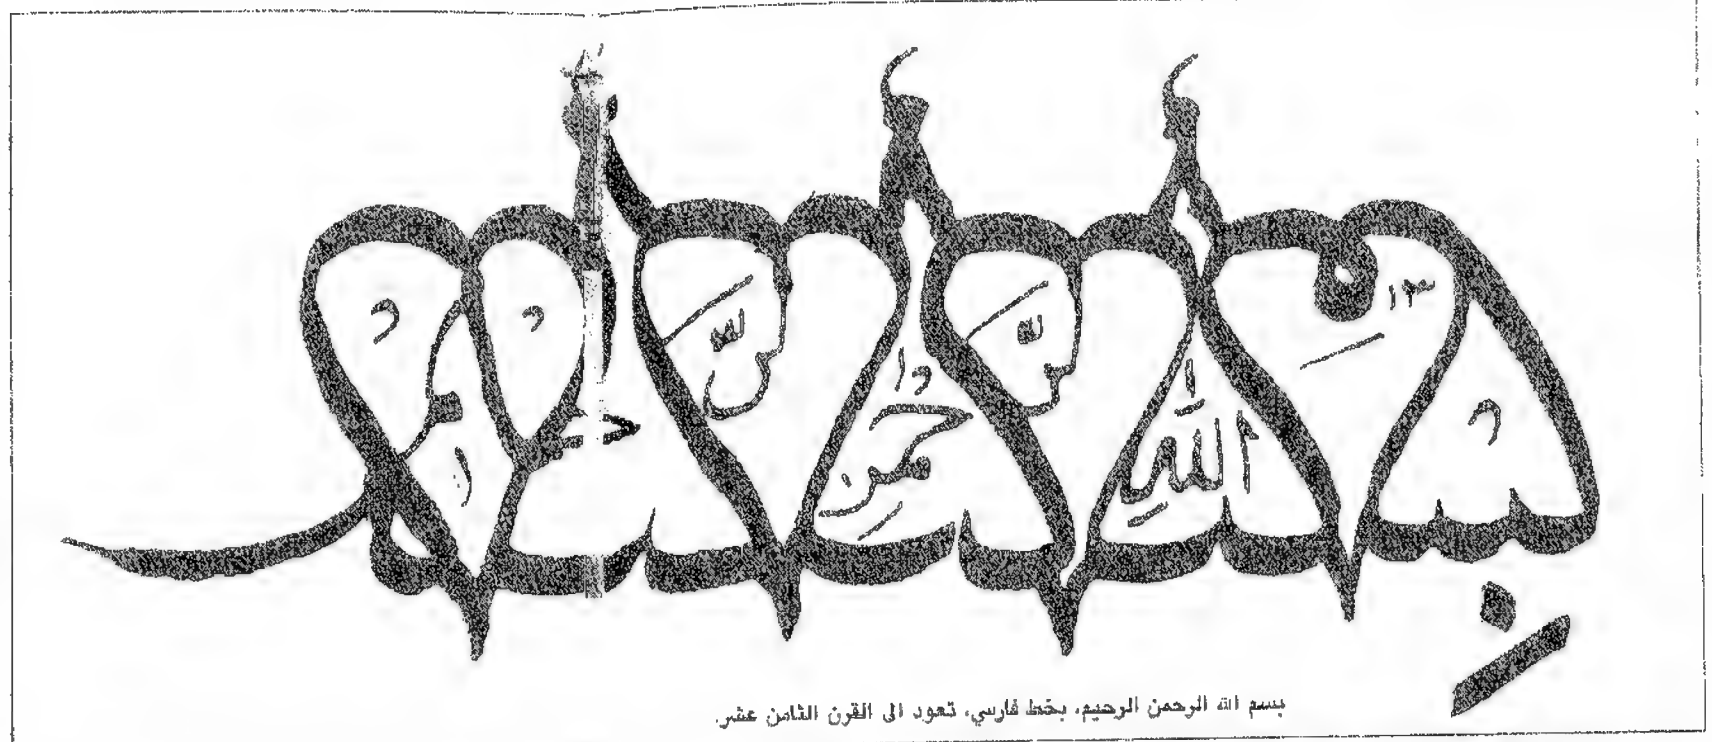 بسم الله الرحمن الرحيم
بسم الله الرحمن الرحيم، بخط فارسي، تعود الى القرن الثامن عشر.